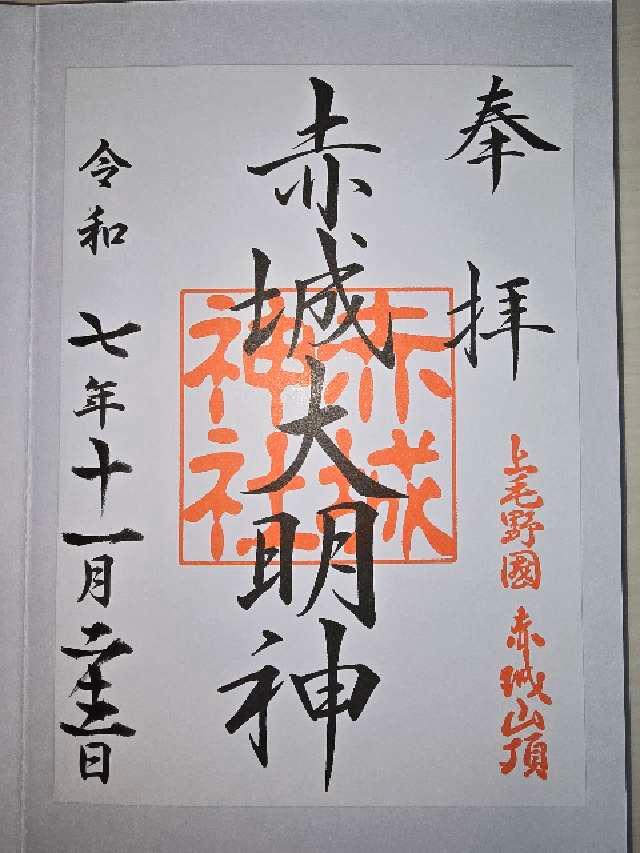 奉拝
上毛野國 赤城山頂
赤城大明神
赤城
神社
令和 七年十一月二十二日